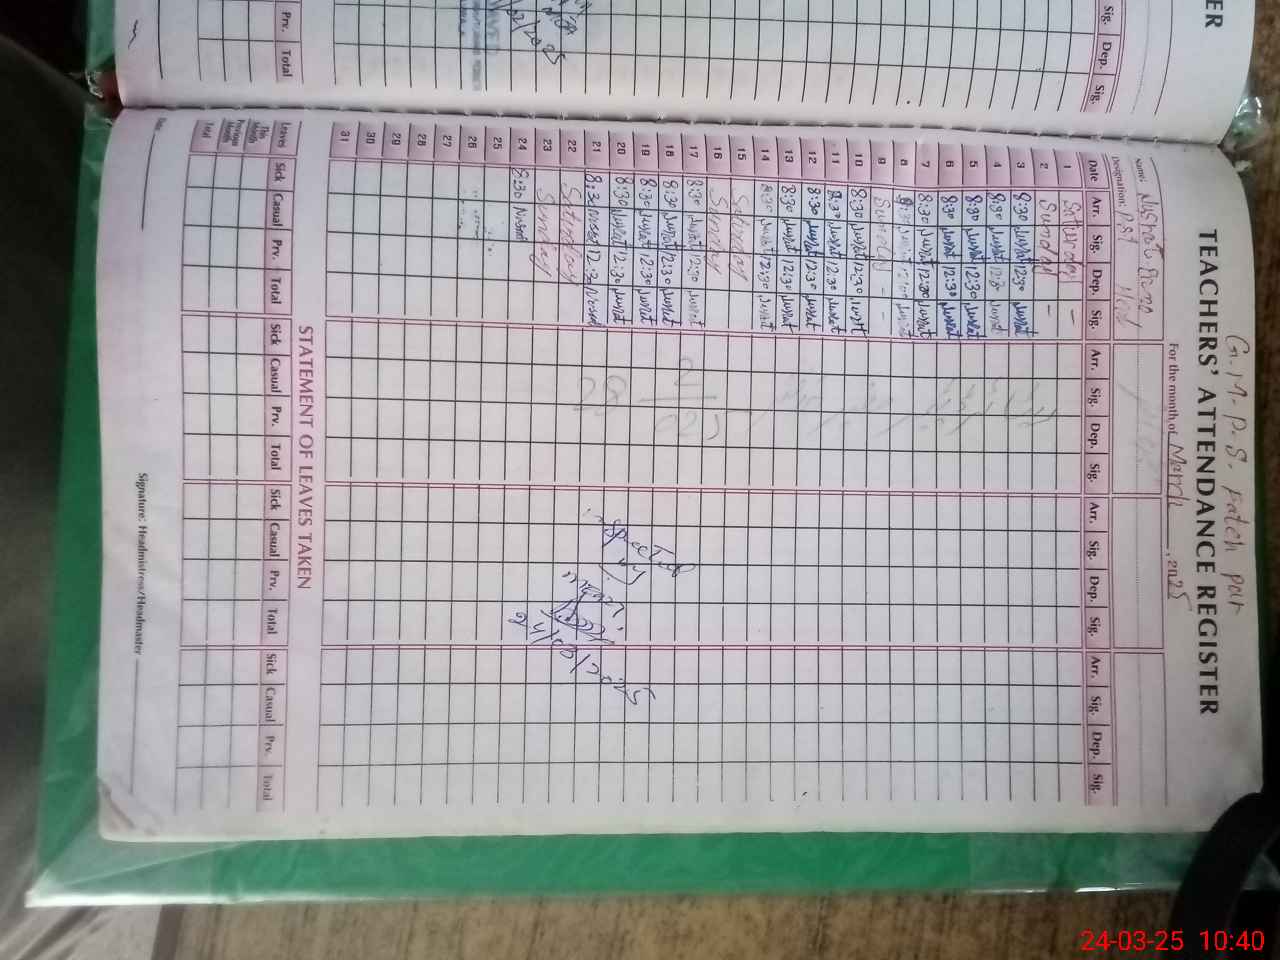 G.M.P.S. Fateh pur
TEACHERS' ATTENDANCE REGISTER
For the month of March, 2025
Name:
Designation: PST Head
Date Arr. Sig. Dep. Sig. Arr. Sig. Dep. Sig. Arr. Sig. Dep. Sig. Arr. Sig. Dep. Sig.
1 Saturday –
2 Sunday –
3 8:30 Nusrat 12:30 Nusrat
4 8:30 Nusrat 12:30 Nusrat
5 8:30 Nusrat 12:30 Nusrat
6 8:30 Nusrat 12:30 Nusrat
7 8:30 Nusrat 12:30 Nusrat
8 Nusrat
9 Sunday – –
10 8:30 Nusrat 12:30 Nusrat
11 8:30 Nusrat 12:30 Nusrat
12 8:30 Nusrat 12:30 Nusrat
13 8:30 Nusrat 12:30 Nusrat
14 8:30 Nusrat 12:30 Nusrat
15 Saturday
16 Sunday
17 8:30 Nusrat 12:30 Nusrat
18 8:30 Nusrat 12:30 Nusrat
19 8:30 Nusrat 12:30 Nusrat
20 8:30 Nusrat 12:30 Nusrat
21 8:30 Nusrat 12:30 Nusrat
22 Saturday
23 Sunday
24 8:30 Nusrat
25
26
27
28
29
30
31
24/03/2025
STATEMENT OF LEAVES TAKEN
Leaves Sick Casual Prv. Total Sick Casual Prv. Total Sick Casual Prv. Total Sick Casual Prv. Total
This Month
Previous Month
Total
Date:
Signature: Headmistress/Headmaster
ER
Sig. Dep. Sig.
Prv. Total
24-03-25 10:40